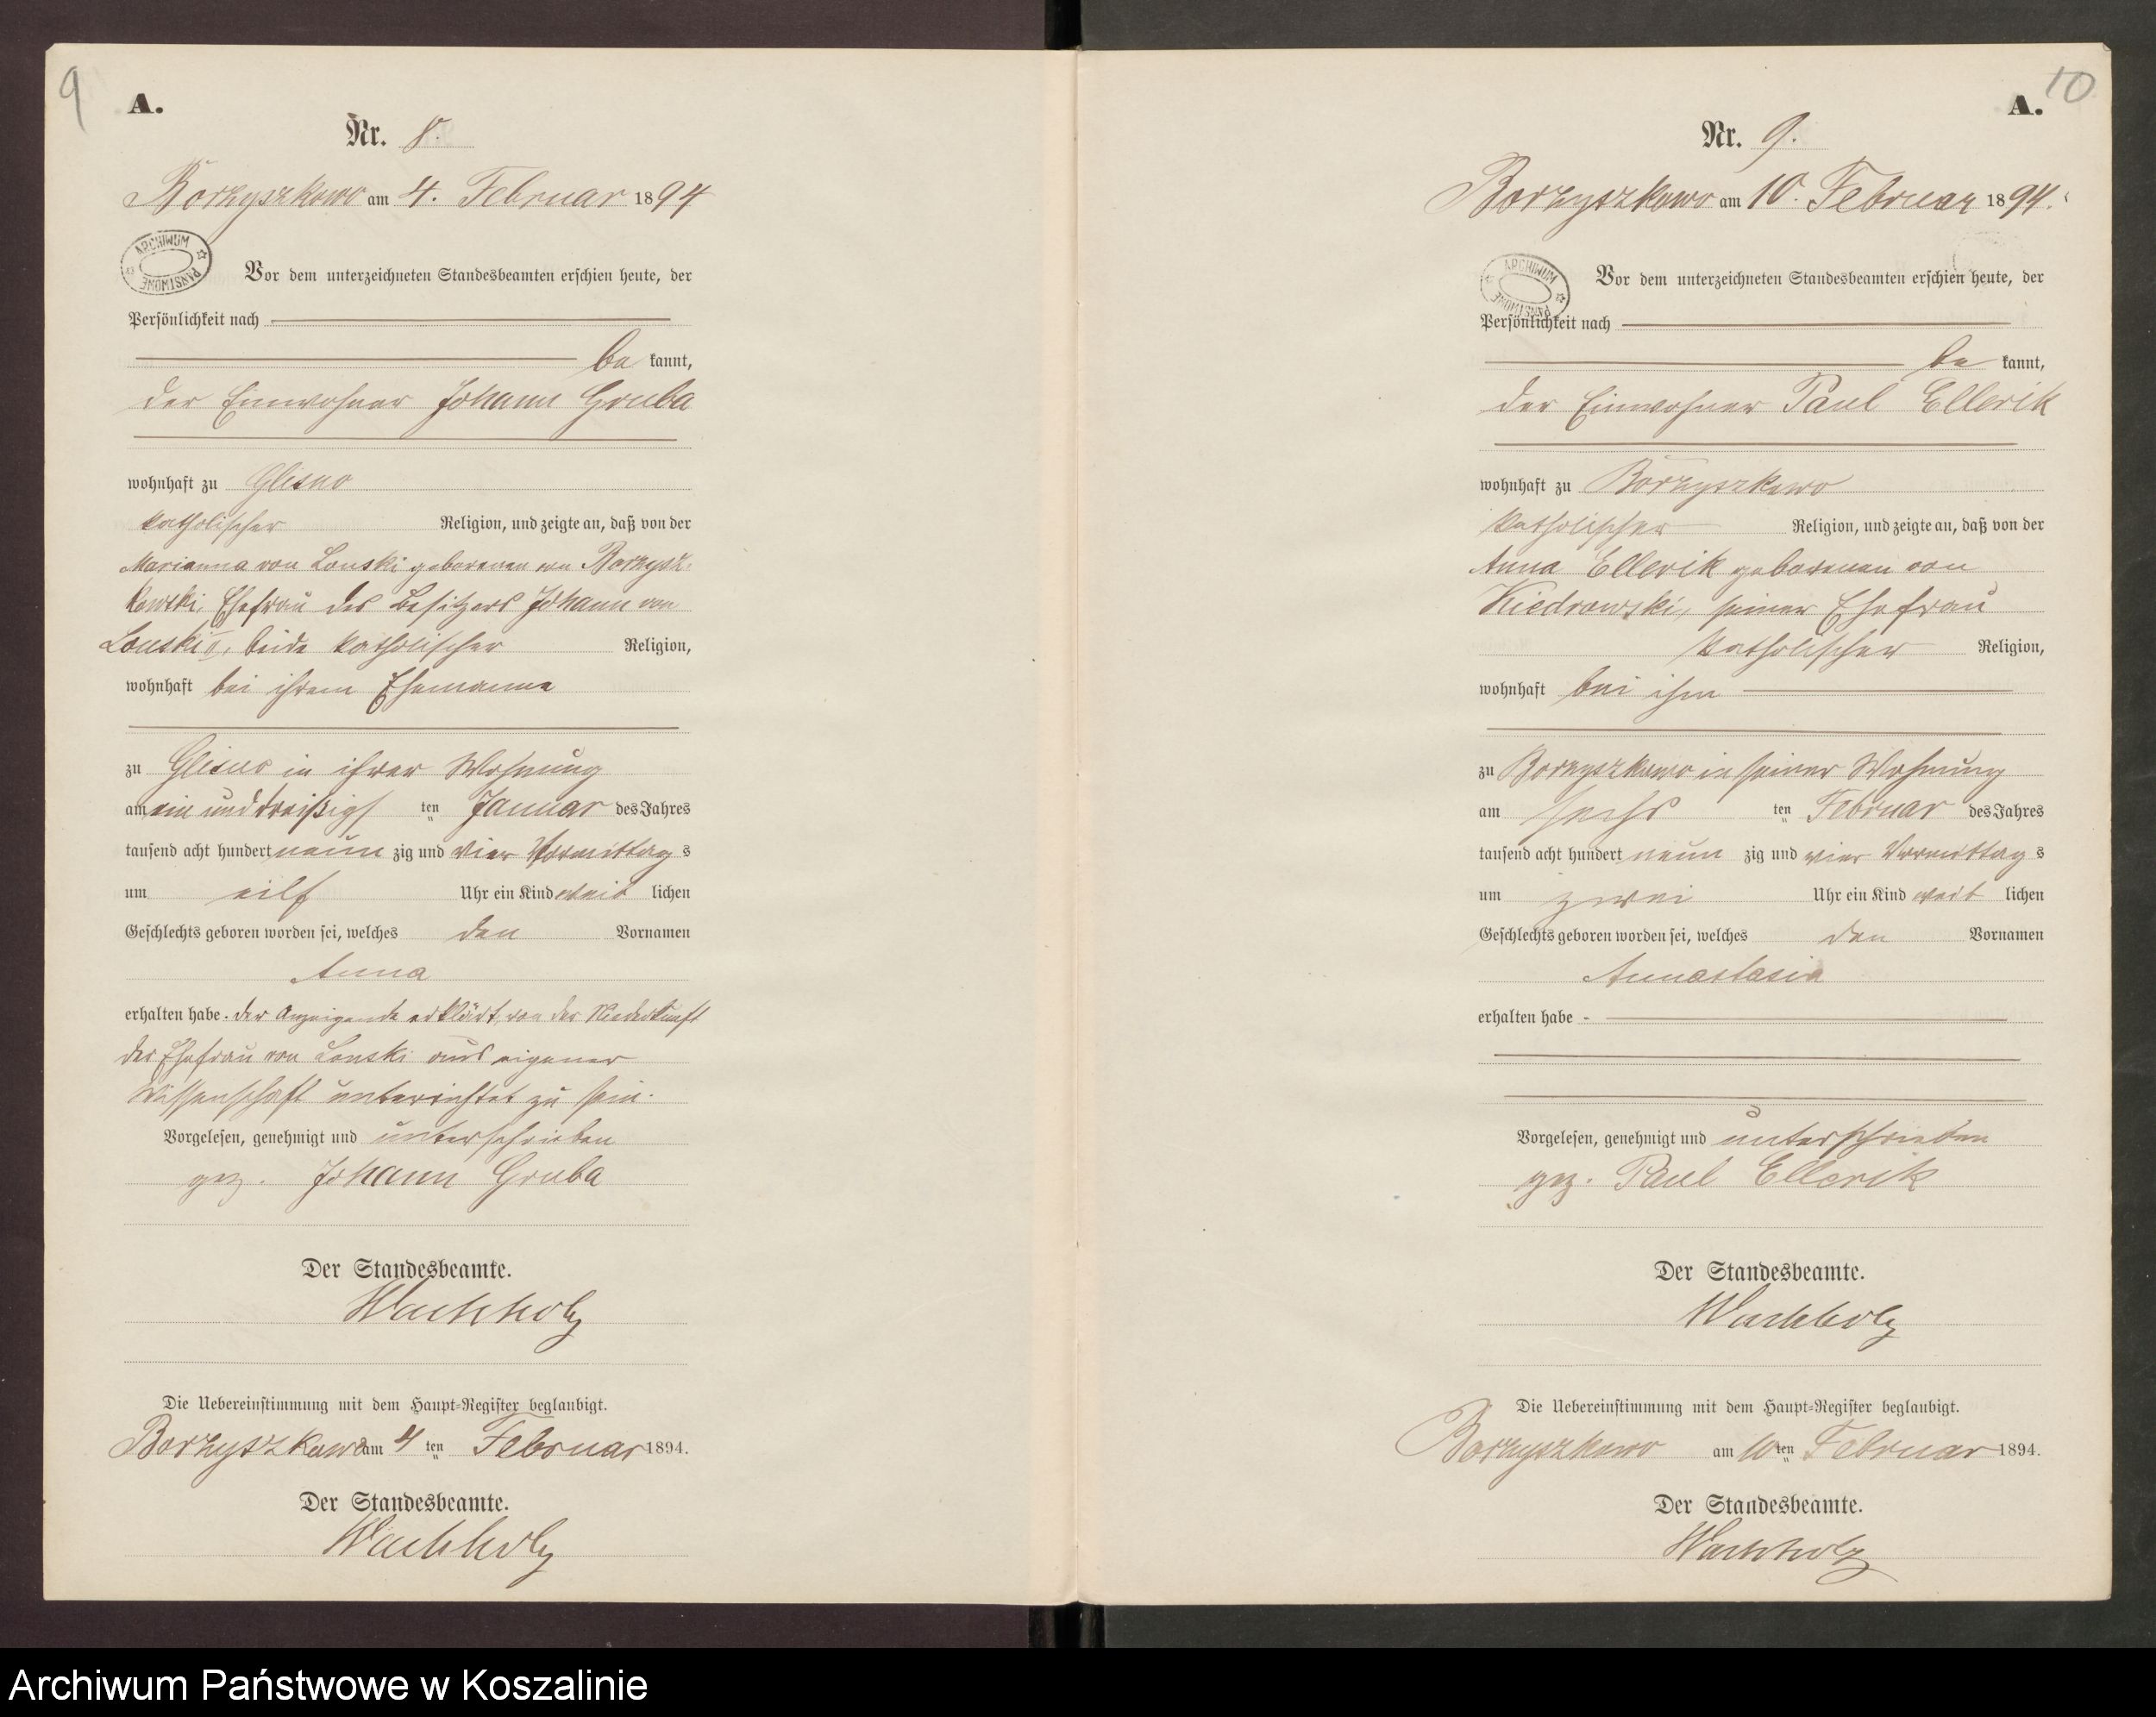 9
A.
Nr. 8.
Borzyszkowo am 4. Februar 1894
ARCHIWUM PAŃSTWOWE
Vor dem unterzeichneten Standesbeamten erschien heute, der
Persönlichkeit nach
be kannt,
der Einwohner Johann Gruba
wohnhaft zu Glisno
katholischer Religion, und zeigte an, daß von der
Marianna von Lonski geborenen von Borzysz-
kowski, Ehefrau des Besitzers Johann von
Lonski II, beide katholischer Religion,
wohnhaft bei ihrem Ehemanne
zu Glisno in ihrer Wohnung
am ein und dreißigs ten Januar des Jahres
tausend acht hundert neun zig und vier Vormittag s
um eilf Uhr ein Kind weib lichen
Geschlechts geboren worden sei, welches den Vornamen
Anna
erhalten habe. Der Anzeigende erklärt, von der Niederkunft
der Ehefrau von Lonski aus eigener
Wissenschaft unterrichtet zu sein.
Vorgelesen, genehmigt und unterschrieben
gez. Johann Gruba
Der Standesbeamte.
Wachholz
Die Uebereinstimmung mit dem Haupt-Register beglaubigt.
Borzyszkowo am 4 ten Februar 1894.
Der Standesbeamte.
Wachholz
10
A.
Nr. 9.
Borzyszkowo am 10. Februar 1894.
ARCHIWUM PAŃSTWOWE
Vor dem unterzeichneten Standesbeamten erschien heute, der
Persönlichkeit nach
be kannt,
der Einwohner Paul Ellerik
wohnhaft zu Borzyszkowo
katholischer Religion, und zeigte an, daß von der
Anna Ellerik geborenen von
Kiedrowski, seiner Ehefrau
katholischer Religion,
wohnhaft bei ihm
zu Borzyszkowo in seiner Wohnung
am sechs ten Februar des Jahres
tausend acht hundert neun zig und vier Vormittag s
um zwei Uhr ein Kind weib lichen
Geschlechts geboren worden sei, welches den Vornamen
Annastasia
erhalten habe -
Vorgelesen, genehmigt und unterschrieben
gez. Paul Ellerik
Der Standesbeamte.
Wachholz
Die Uebereinstimmung mit dem Haupt-Register beglaubigt.
Borzyszkowo am 10 ten Februar 1894.
Der Standesbeamte.
Wachholz
Archiwum Państwowe w Koszalinie